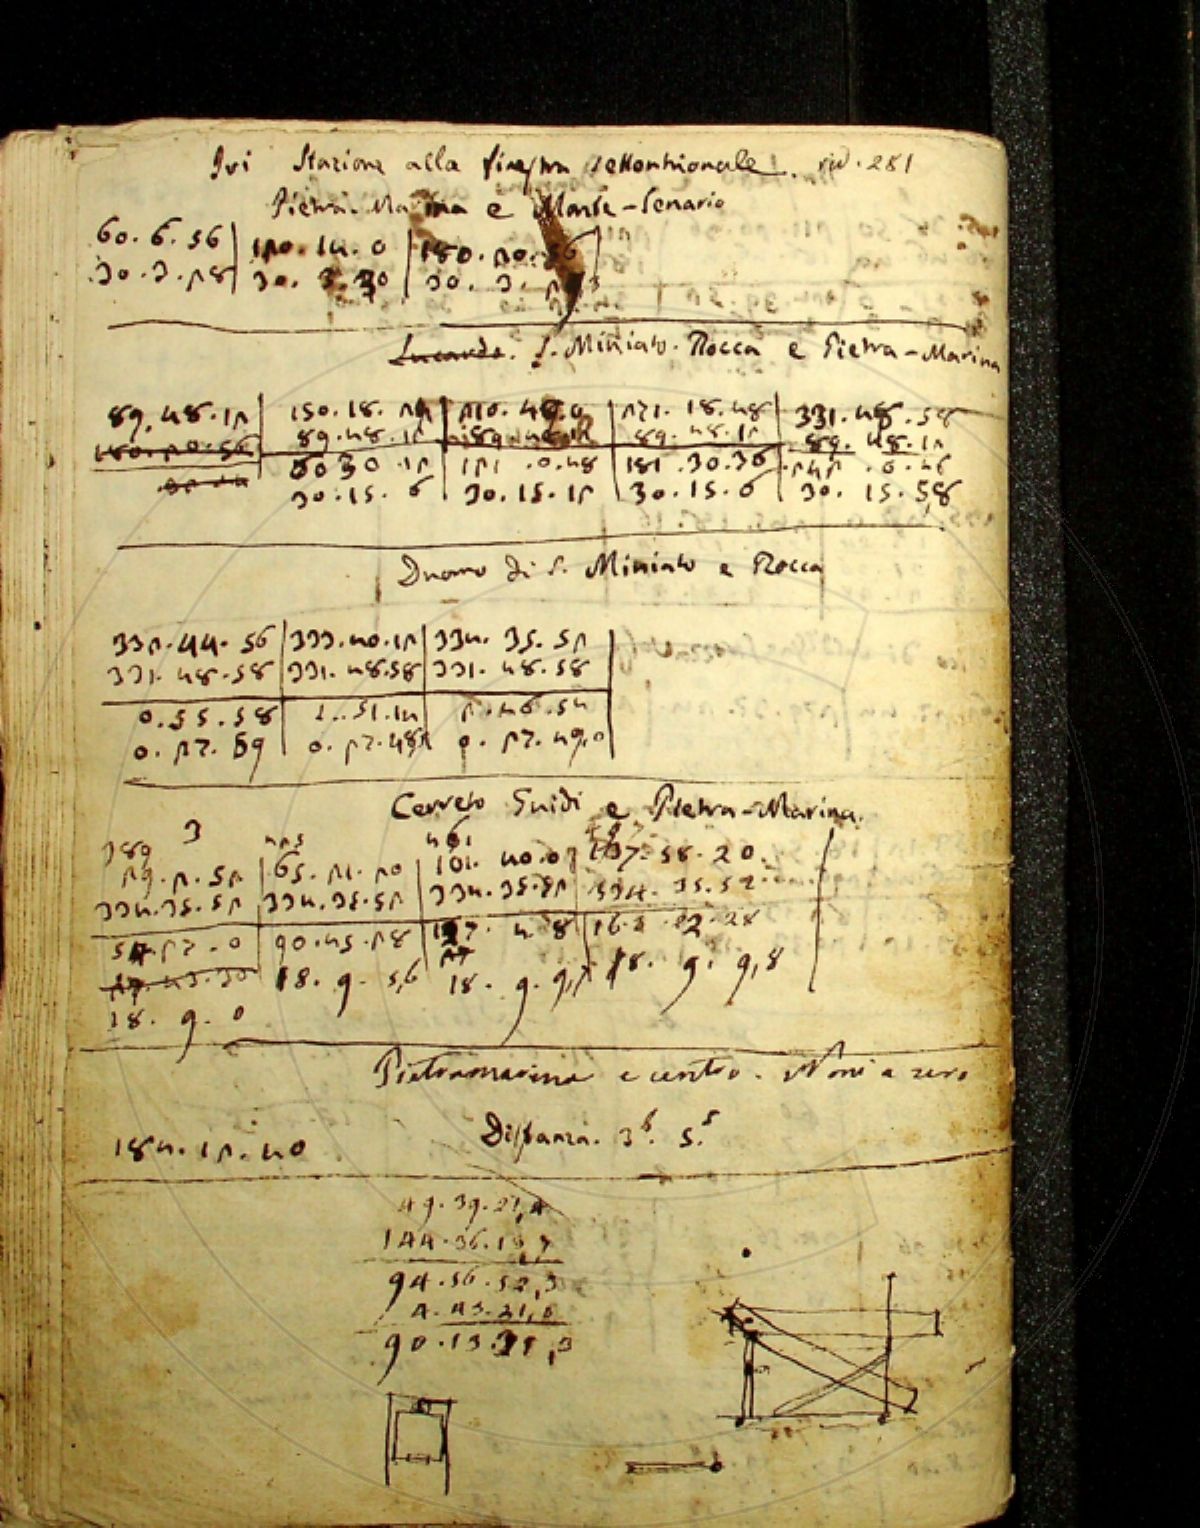 Ivi Stazione alla finestra settentrionale. vid. 281
Pietra-Marina e Monte-Senario
60.6.56 | 120.14.0 | 180.20.56
30.3.28 | 30.3.30 | 30.3.
Lucardo. S. Miniato. Rocca e Pietra-Marina
89.48.12 | 150.18.24 | 210.49.0 | 271.18.48 | 331.48.58
180.20.56 | 89.48.12 | 89.48.12 | 89.48.12 | 89.48.12
60 30.12 | 121.0.48 | 181.30.36 | 242.0.46
30.15.6 | 30.15.12 | 30.15.6 | 30.15.5,8
Duomo di S. Miniato e Rocca
332.44.56 | 333.40.12 | 334.35.52
331.48.58 | 331.48.58 | 331.48.58
0.55.58 | 1.51.14 | 2.46.54
0.27.59 | 0.27.48 | 0.27.49,0
Cerreto Guidi e Pietra-Marina.
389 3 425 461 497
29.2.52 | 65.21.20 | 101.40.0 | 137.58.20
334.35.52 | 334.35.52 | 334.35.52 | 334.35.52
54.27.0 | 90.45.28 | 127.4.8 | 163.22.28
27.43.30 | 18.9.5,6 | 18.9.9, | 18.9.9,8
18.9.0
Pietramarina e centro. Noni a zero
184.12.40 Distanza. 3⁶. 5.⁵
49.39.27,4
144.36.19,7
94.56.52,3
4.43.21,0
90.13.31,3